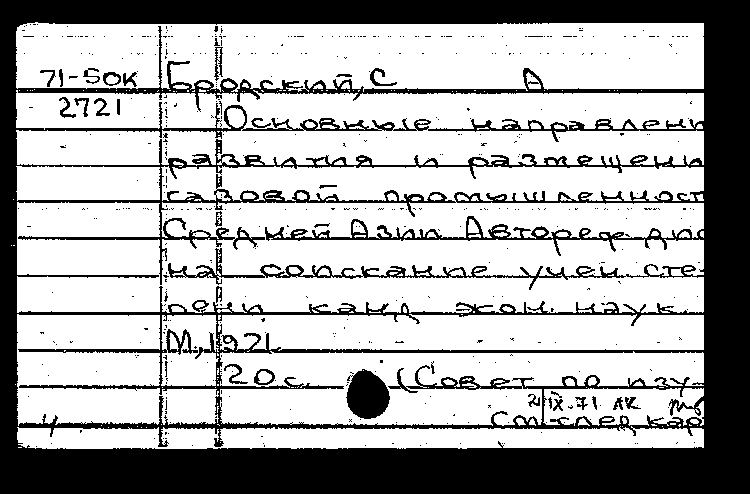 71-50К
2721
Бродский, С А
Основные направлени
развития и размещени
газовой промышленност
Средней Азии Автореф дис
на соискание учен. сте-
пени канд экон. наук.
М., 1971.
20 с. (Совет по изу-
21/IX-71 АК
См. след кар
4